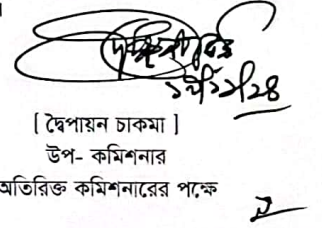 [ দ্বৈপায়ন চাকমা ]
উপ- কমিশনার
অতিরিক্ত কমিশনারের পক্ষে